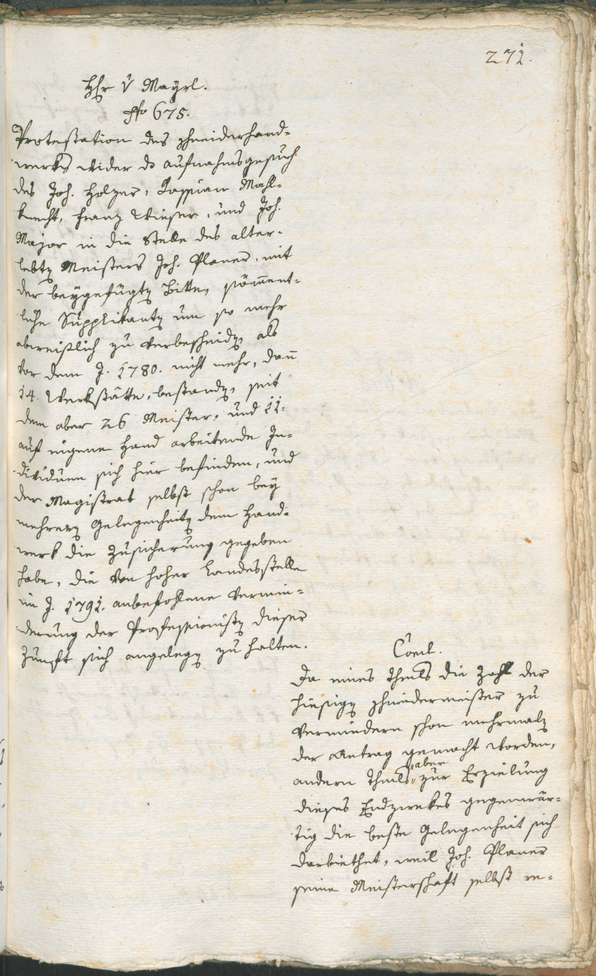 271.
Hr v Mayrl.
No 675.
Protestation des Schneiderhand-
werks wider das Aufnahmsgesuch
des Joh. Holzer, Cassian Mahl-
knecht, Franz Wieser, und Joh.
Major in die Stelle des alter-
lebten Meisters Joh. Planer, mit
der beygefügten Bitte, sämment-
liche Supplikanten um so mehr
abweislich zu verbescheiden, als
vor dem J. 1780. nicht mehr, dan
14. Werkstätte, bestanden, seit
dem aber 26 Meister, und 11.
auf eigene Hand arbeitende In-
dividuen sich hier befinden, und
der Magistrat selbst schon bey
mehreren Gelegenheiten dem Hand-
werk die Zusicherung gegeben
habe, die von hoher Landesstelle
im J. 1791. anbefohlene Vermin-
derung der Professionisten dieser
Zunft sich angelegen zu halten.
Concl.
Da eines Theils die Zahl der
hiesigen Schneidermeister zu
vermindern schon mehrmalen
der Antrag gemacht worden,
andern Theils aber zur Erzielung
dieses Endzwekes gegenwär-
tig die beste Gelegenheit sich
darbiethet, weil Joh. Planer
seine Meisterschaft selbst re-